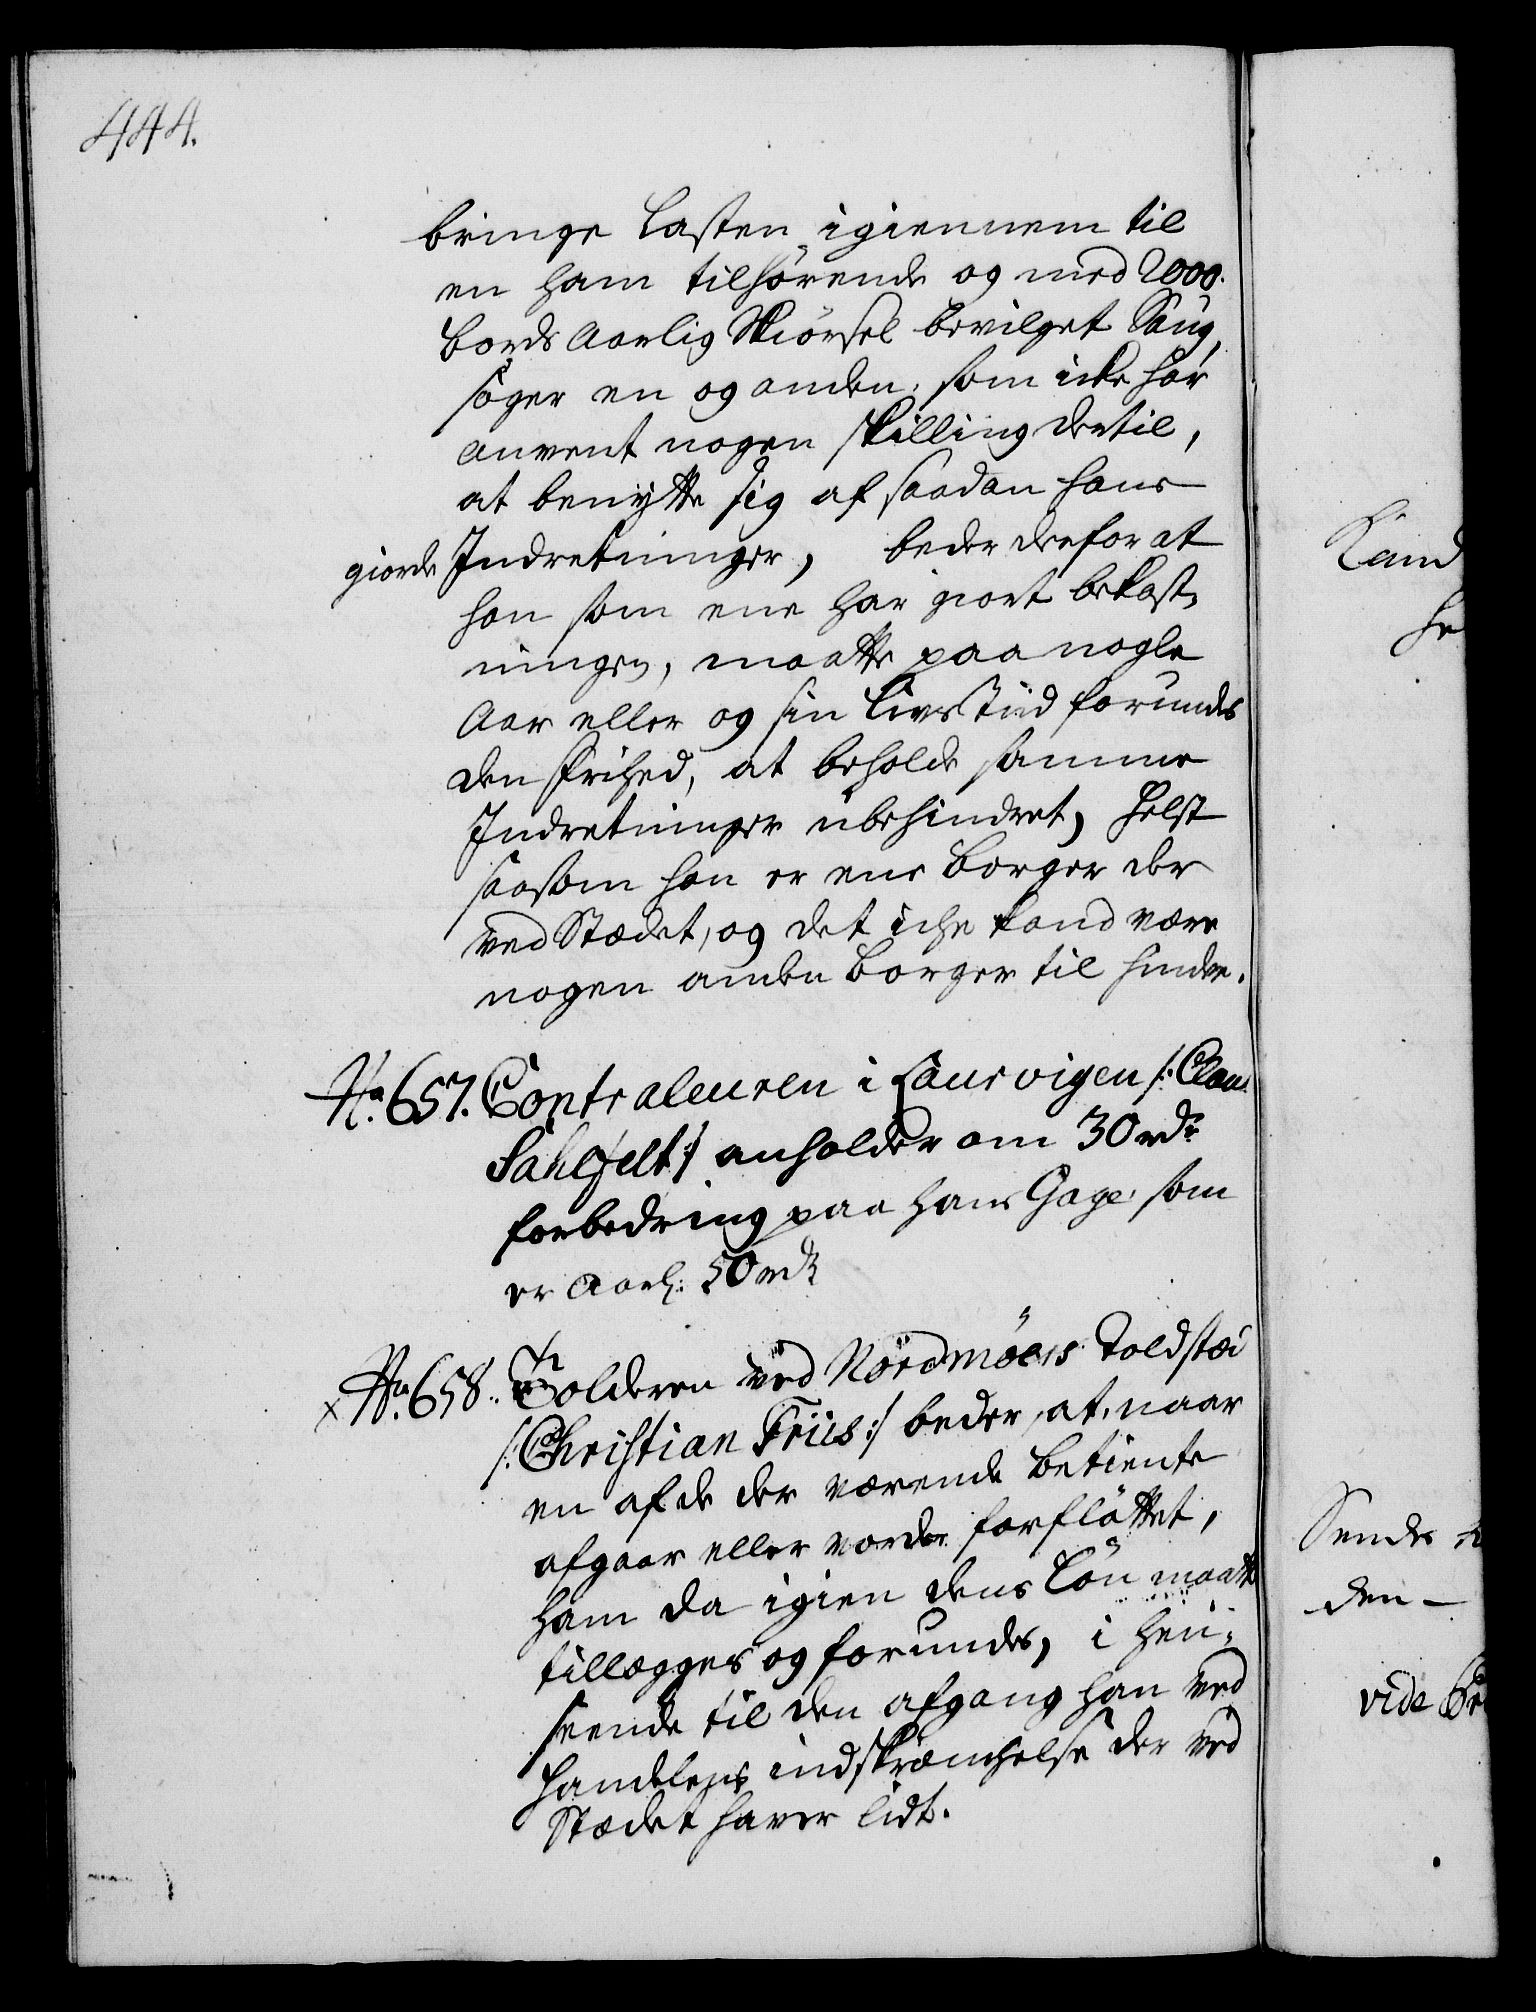 444.
bringe Lasten igiennem til
en ham tilhörende og med 2000.
bords Aarlig Skiörsel bevilget Saug,
söger en og anden, som icke har
anvent nogen Skilling dertil,
at benytte sig af saadan hans
giorde Indretninger, beder derfor at
han som ene har giort bekost,
ningen, maatte paa nogle
Aar eller og sin Livs Tiid forundes
den Friehed, at beholde samme
Indretninger ubehindret, helst
saasom han er ene Borger der
ved Stædet, og det iche kand være
nogen anden Borger til hinder.
No. 657. Contraleuren i Laurvigen /: Claus
Sahlfelt :/ anholder om 30 rdr
forbedring paa hans Gage, som
er Aarl: 50 rdr
x No. 658. Tolderen ved Nordmöers Toldstæd
/: Christian Friis :/ beder, at, naar
en af de der værende Betiente
afgaar eller vorder forflöttet,
ham da igien dens Lön maatte
tillegges og forundes, i hen;
seende til den afgang han ved
handelens indskrænchelse der ved
Stædet haver lidt.
Land
he
Sendes
den
vide